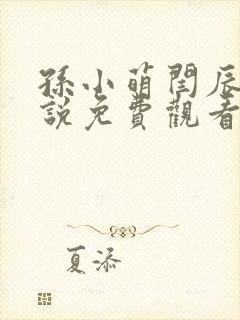 孫小萌閆辰
說免費觀看
夏添